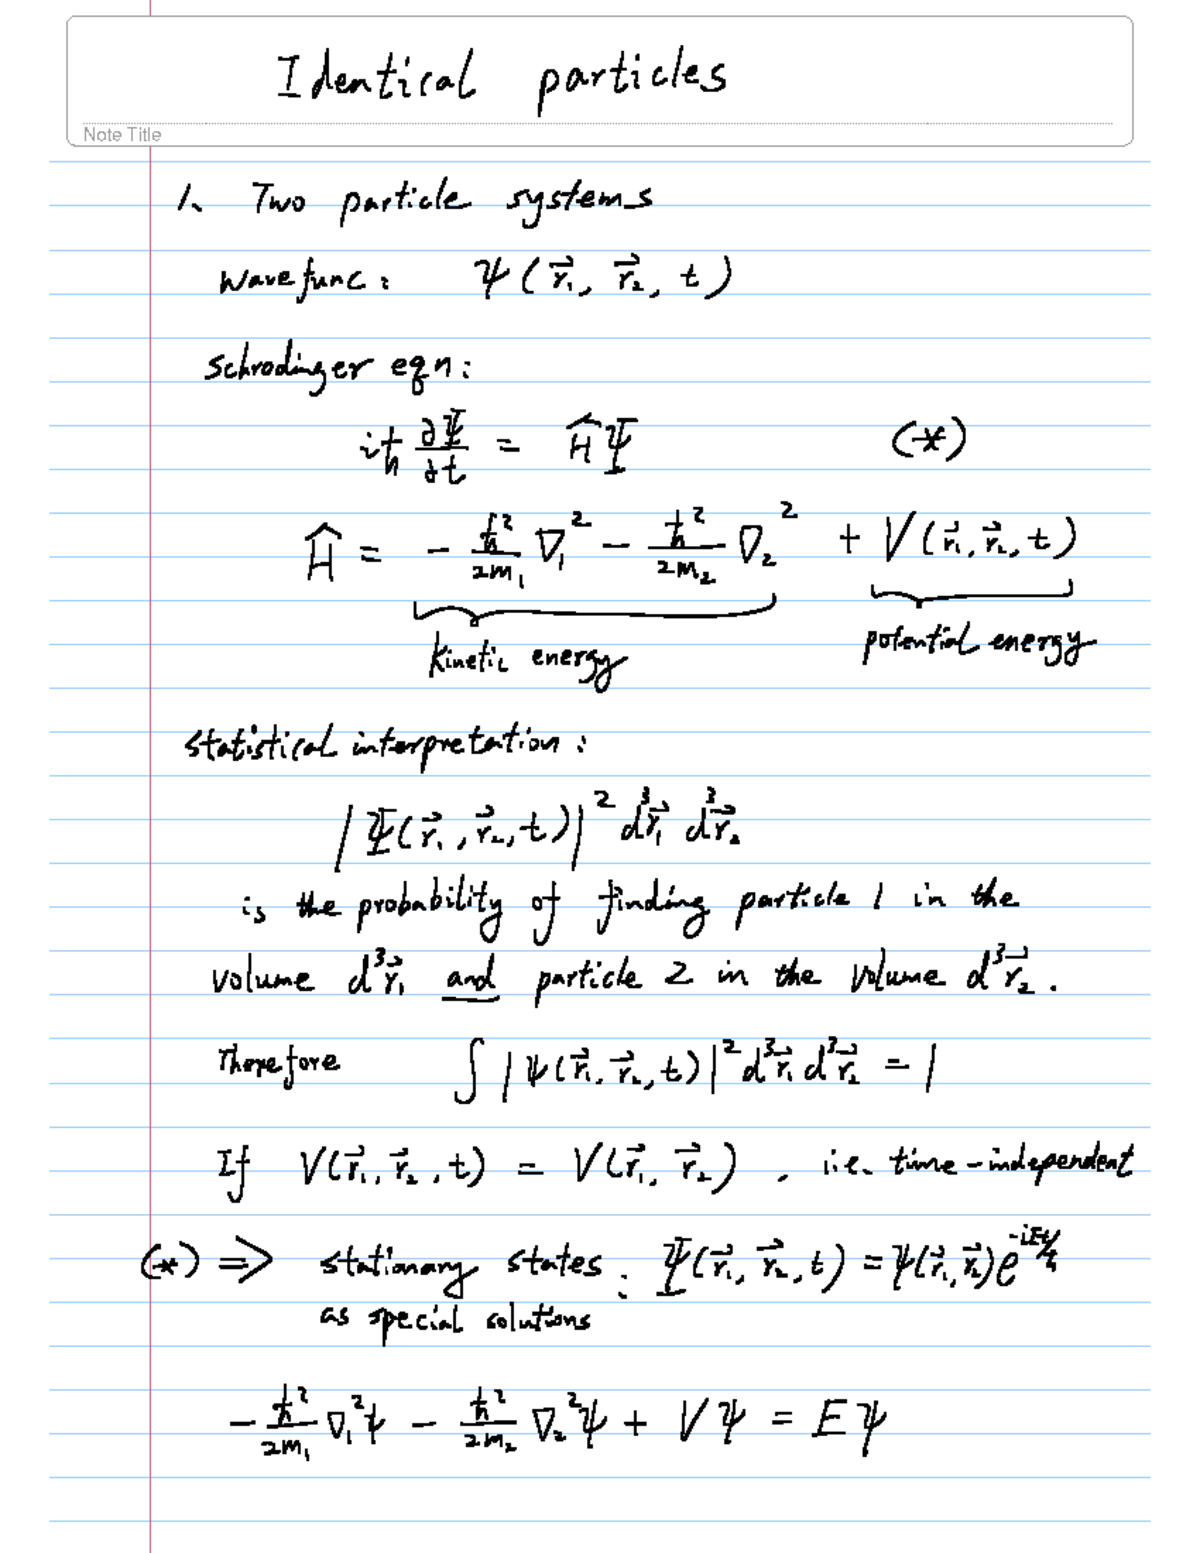 Identical particles
Note Title
1. Two particle systems
Wavefunc: ψ(r⃗₁, r⃗₂, t)
Schrodinger eqn:
iℏ ∂Ψ/∂t = ĤΨ (*)
Ĥ = - ℏ²/2m₁ ∇₁² - ℏ²/2m₂ ∇₂² + V(r⃗₁, r⃗₂, t)
kinetic energy potential energy
Statistical interpretation:
|Ψ(r⃗₁, r⃗₂, t)|² d³r⃗₁ d³r⃗₂
is the probability of finding particle 1 in the
volume d³r⃗₁ and particle 2 in the volume d³r⃗₂.
Therefore ∫ |ψ(r⃗₁, r⃗₂, t)|² d³r⃗₁ d³r⃗₂ = 1
If V(r⃗₁, r⃗₂, t) = V(r⃗₁, r⃗₂), i.e. time-independent
(*) ⇒ stationary states: Ψ(r⃗₁, r⃗₂, t) = ψ(r⃗₁, r⃗₂) e^{-iEt/ℏ}
as special solutions
- ℏ²/2m₁ ∇₁²ψ - ℏ²/2m₂ ∇₂²ψ + Vψ = Eψ